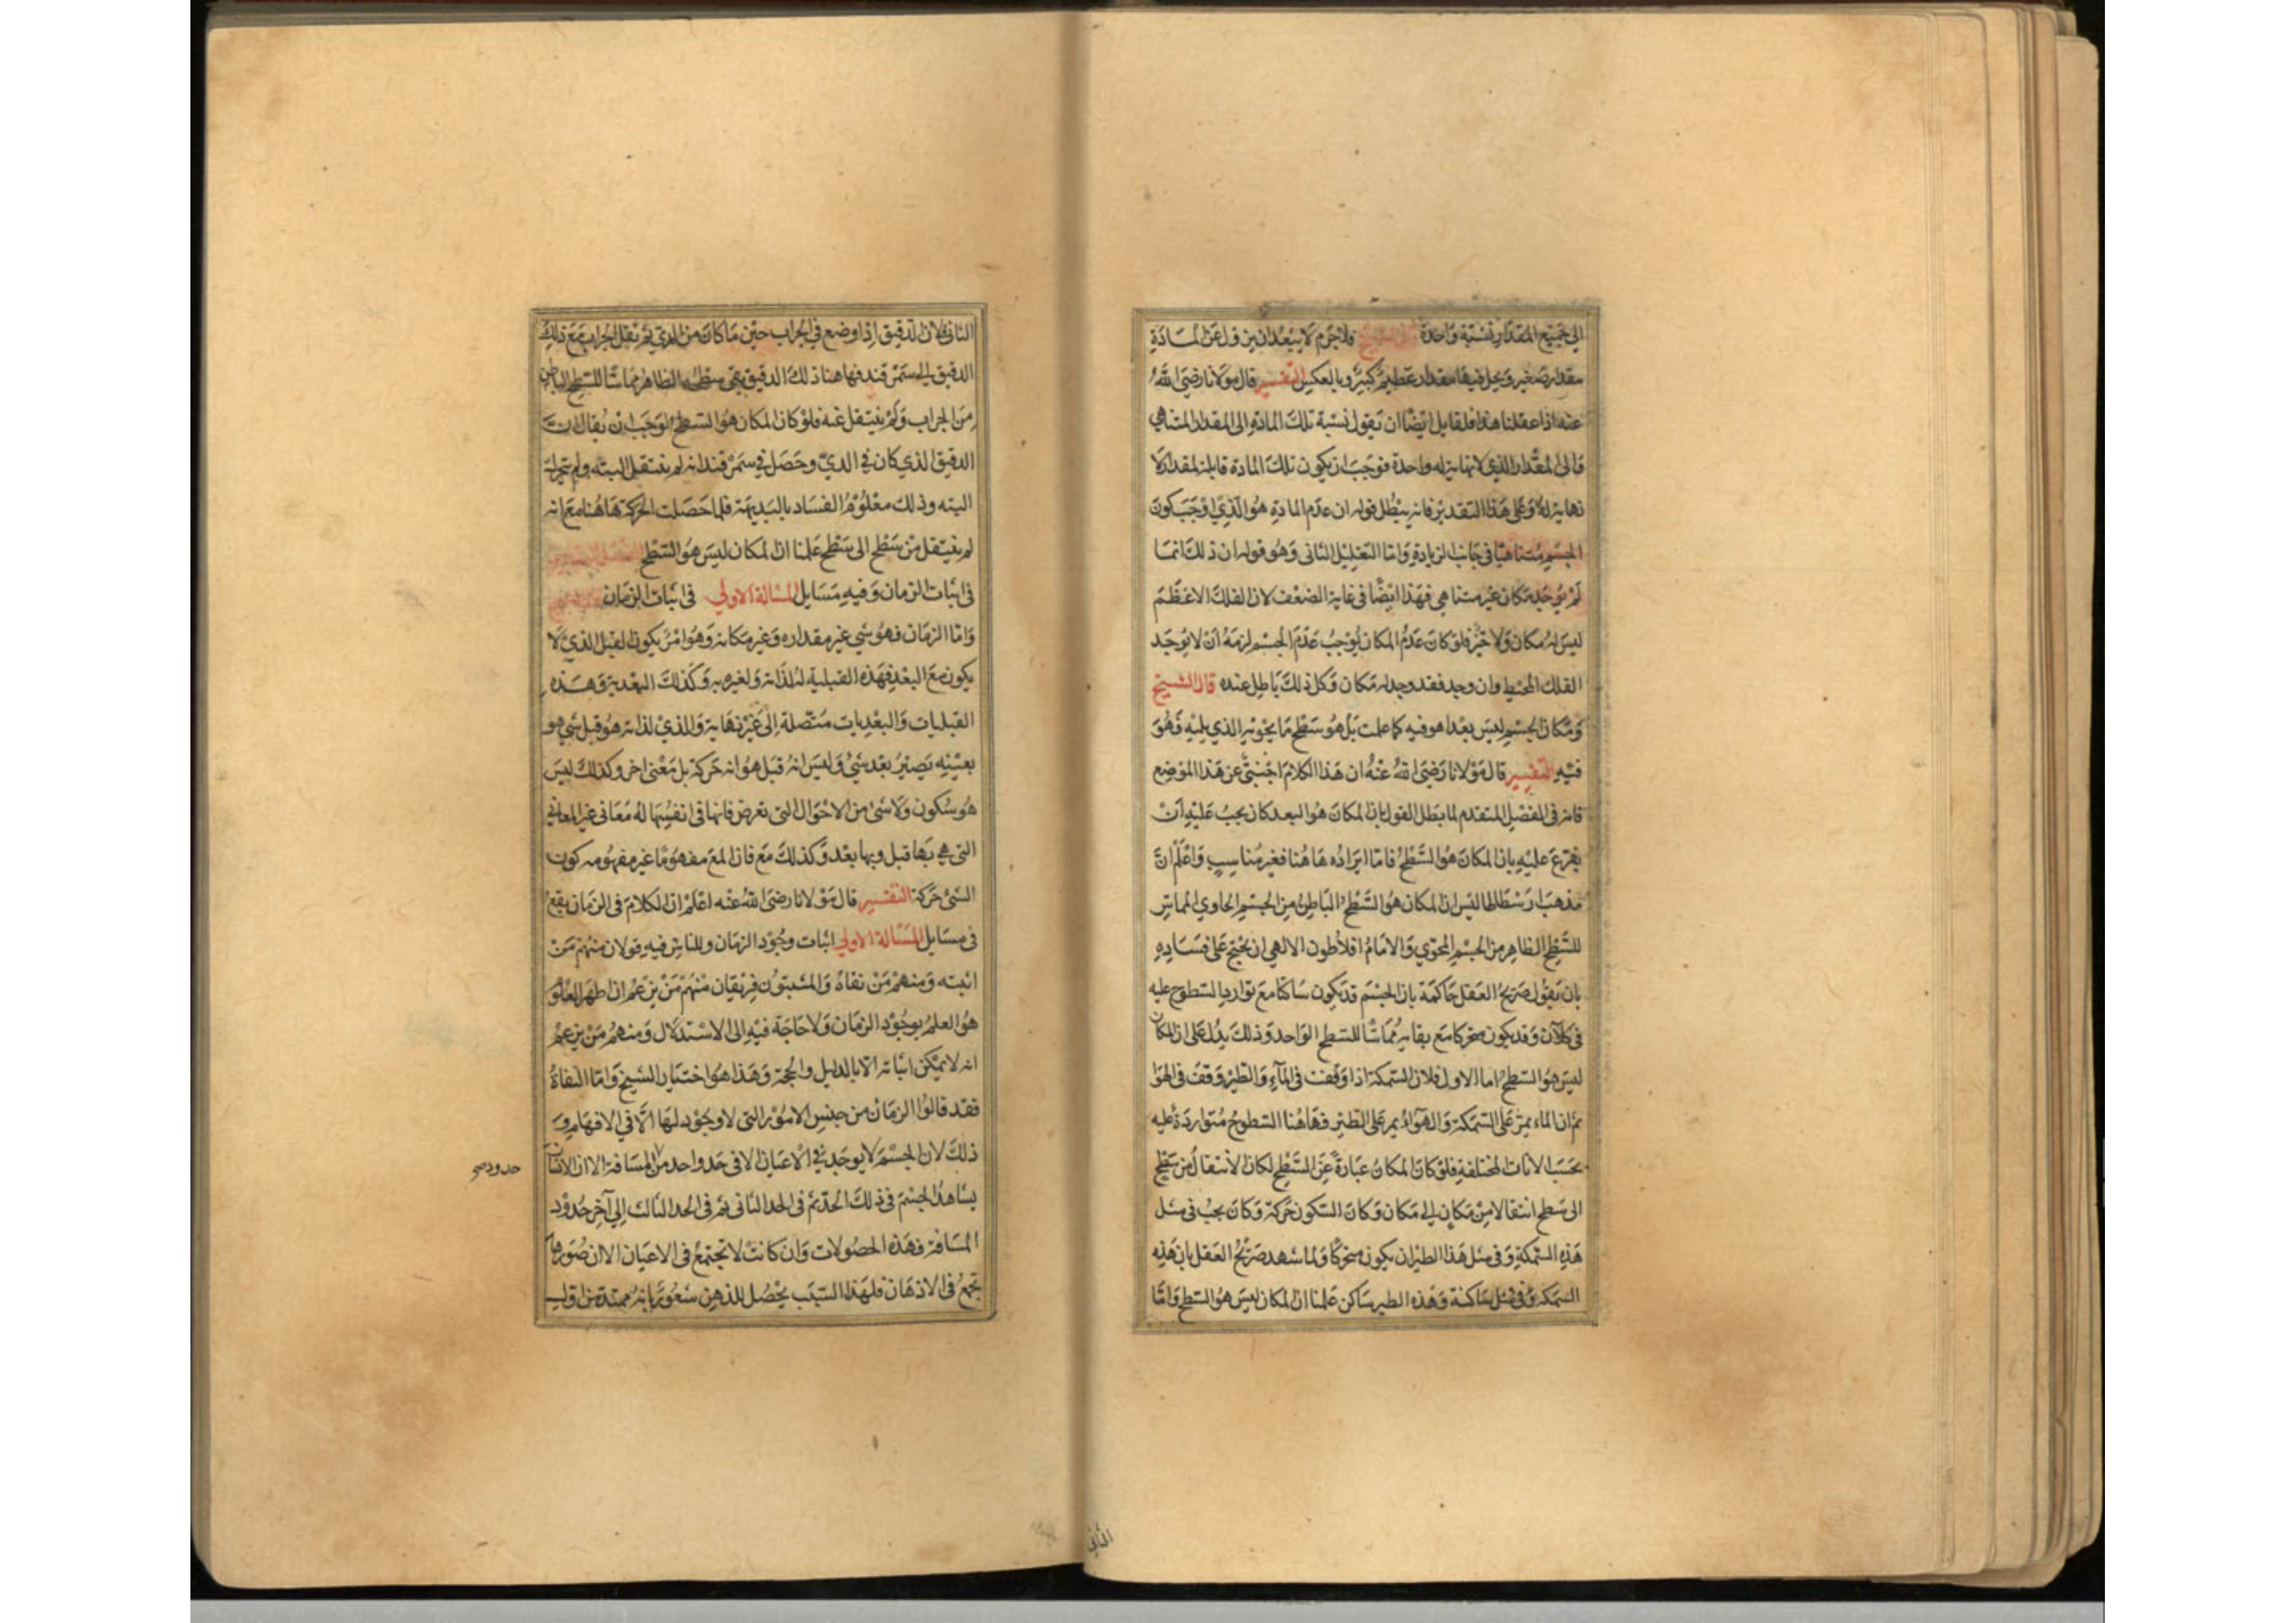 الى جميع المقدار نسبة واحدة قال الشيخ فلا جرم لا يبعد ان يزول عن المادة
مقدار صغير ويحل فيها مقدار عظيم كبير وبالعكس التفسير قال مولانا رضي الله
عنه اذا عقلنا هذا فلقايل ايضا ان يقول نسبة تلك المادة الى المقدار المتناهي
والى المقدار الذي لا نهاية له واحدة فوجب ان يكون تلك المادة قابلة لمقدار لا
نهاية له وعلى هذا التقدير فانه يبطل قوله ان عدم المادة هو الذي اوجب كون
الجسم متناهيا في جانب الزيادة واما التعليل الثاني وهو قوله ان ذلك انما
لم يوجد مكان غير متناهي فهذا ايضا في غاية الضعف لان الفلك الاعظم
ليس له مكان ولا حيز فلو كان عدم المكان يوجب عدم الجسم لزمه ان لا يوجد
الفلك المحيط وان وجد فقد وجد له مكان وكل ذلك باطل عنده قال الشيخ
ومكان الجسم ليس بعدا هو فيه كما علمت بل هو سطح ما يحويه الذي يليه فهو
فيه التفسير قال مولانا رضي الله عنه ان هذا الكلام اجنبي عن هذا الموضع
فانه في الفصل المتقدم لما بطل القول بان المكان هو البعد كان يجب عليه ان
يفرع عليه بان المكان هو السطح فاما ايراده هاهنا فغير مناسب واعلم ان
مذهب ارسطاطاليس ان المكان هو السطح الباطن من الجسم الحاوي المماس
للسطح الظاهر من الجسم المحوي والامام افلاطون الالهي ان يحتج على فساده
بان يقول صريح العقل حاكمة بان الجسم قد يكون ساكنا مع توارد السطوح عليه
في كل آن وقد يكون متحركا مع بقايه مماسا للسطح الواحد وذلك يدل على ان المكان
ليس هو السطح اما الاول فلان السمكة اذا وقفت في الماء والطير وقف في الهوا
ثم ان الماء يمر على السمكة والهواء يمر على الطير فهاهنا السطوح متواردة عليه
بحسب الانات المختلفة فلو كان المكان عبارة عن السطح لكان الانتقال من سطح
الى سطح انتقالا من مكان الى مكان وكان السكون حركة وكان يجب في مثل
هذه السمكة وفي مثل هذا الطير ان يكون متحركا ولما شهد صريح العقل بان هذه
السمكة ساكنة وهذه الطير ساكن علمنا ان المكان ليس هو السطح واما
الثاني
الثاني فلان الدقيق اذا وضع في الجراب حين ما كان من الري ثم نقل الجراب مع ذلك
الدقيق الى سمرقند فهاهنا ذلك الدقيق بقي سطحه الظاهر مماسا للسطح الباطن
من الجراب ولم ينتقل عنه فلو كان المكان هو السطح لوجب ان يقال ان
الدقيق الذي كان في الري وحصل في سمرقند انه لم ينتقل البتة ولم يتحرك
البته وذلك معلوم الفساد بالبديهة فلما حصلت الحركة هاهنا مع انه
لم ينتقل من سطح الى سطح علمنا ان المكان ليس هو السطح
في اثبات الزمان وفيه مسايل المسالة الاولى في اثبات الزمان
واما الزمان فهو شي غير مقداره وغير مكانه وهو امر يكون القبل الذي لا
يكون مع البعد فهذه القبلية له لذاته ولغيره به وكذلك البعدية وهذه
القبليات والبعديات متصلة الى غير نهاية والذي لذاته هو قبل شي هو
بعينه يصير بعد شي وليس انه قبل هو انه حركة بل معنى اخر وكذلك ليس
هو سكون ولا شي من الاحوال التي تعرض فانها في انفسها له معاني غير المعاني
التي هي بها قبل وبها بعد وكذلك مع فان للمع مفهوما غير مفهومه كون
الشي حركة التفسير قال مولانا رضي الله عنه اعلم ان الكلام في الزمان يقع
في مسايل المسئالة الاولى اثبات وجود الزمان وللناس فيه قولان منهم من
اثبته ومنهم من نفاه والمثبتون فريقان منهم من يزعم ان اظهر العلوم
هو العلم بوجود الزمان ولا حاجة فيه الى الاستدلال ومنهم من يزعم
انه لا يمكن اثباته الا بالدليل والحجة وهذا هو اختيار الشيخ واما النفاة
فقد قالوا الزمان من جنس الامور التي لا وجود لها الا في الافهام و
ذلك لان الجسم لا يوجد في الاعيان الا في حد واحد من المسافة الا ان الانسان
حدود صح
يشاهد الجسم في ذلك الحد ثم في الحد الثاني ثم في الحد الثالث الى آخر حدود
المسافة فهذه الحصولات وان كانت لا تجتمع في الاعيان الا ان صورها
تجتمع في الاذهان فلهذا السبب يحصل للذهن شعور بانه ممتدة من اول